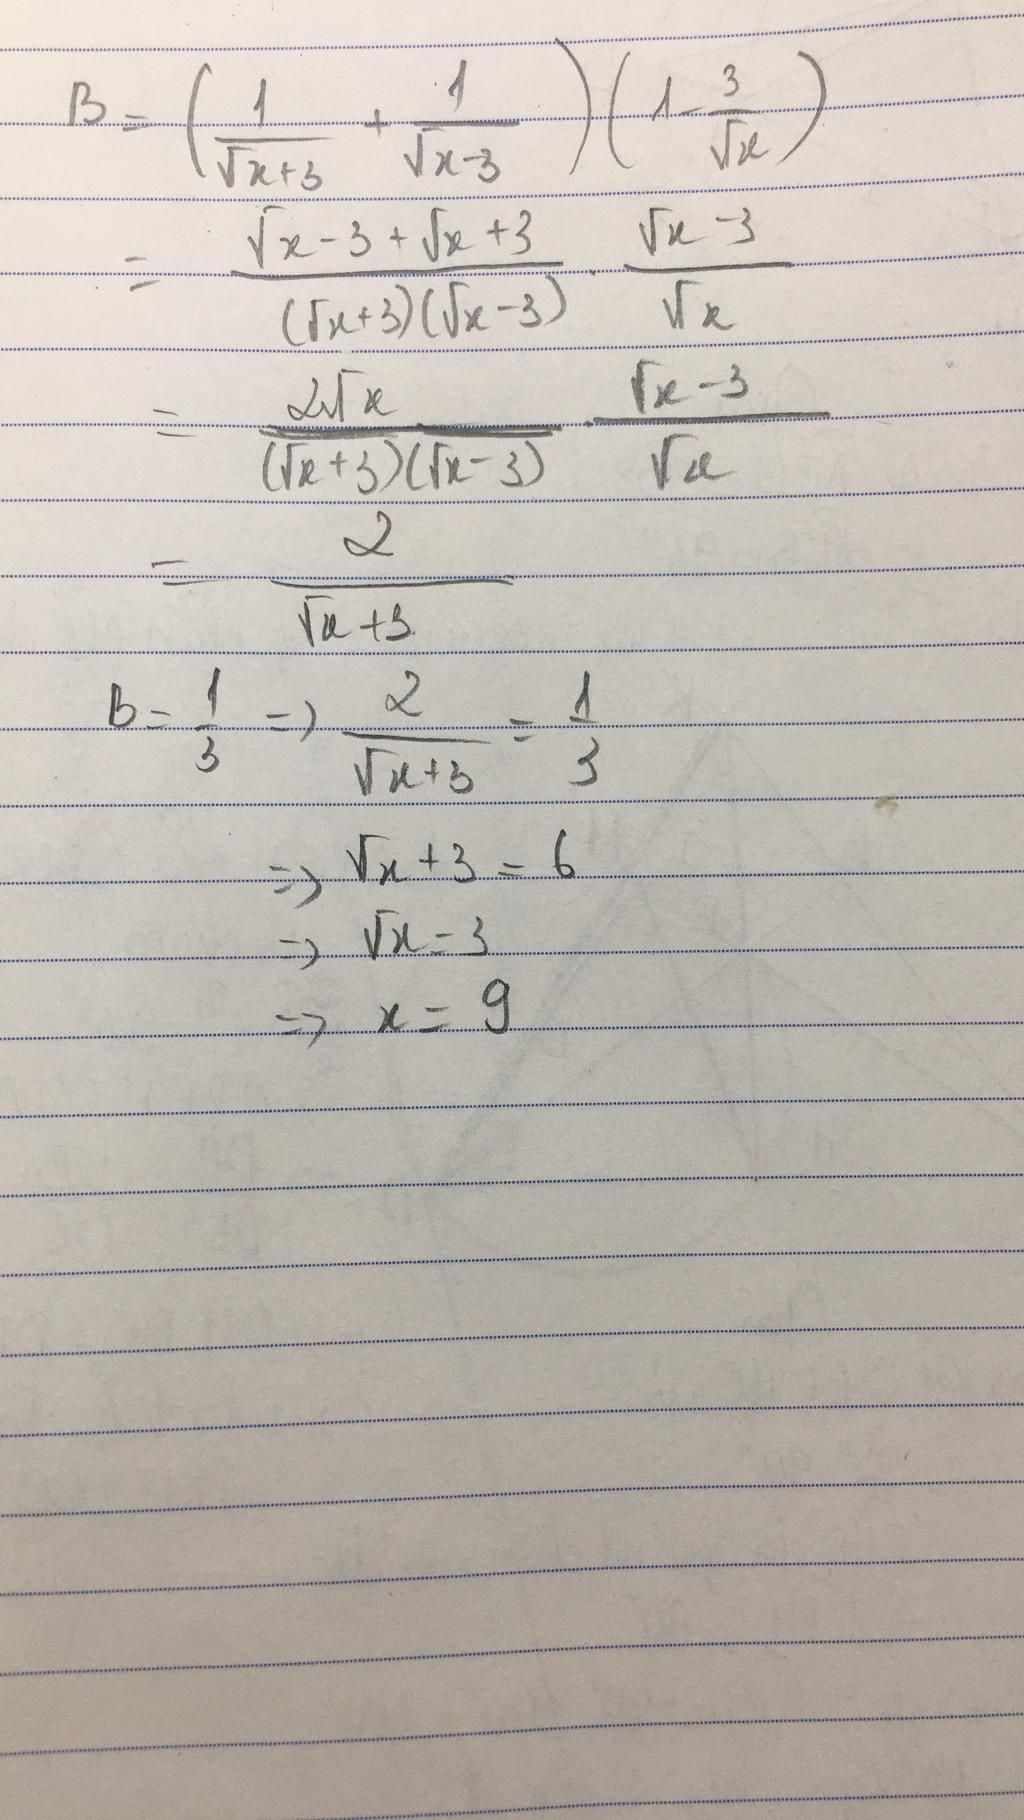 B = (1/(√x+3) + 1/(√x-3))(1 - 3/√x)
= (√x-3+√x+3)/((√x+3)(√x-3)) . (√x-3)/√x
= 2√x/((√x+3)(√x-3)) . (√x-3)/√x
= 2/(√x+3)
B = 1/3 => 2/(√x+3) = 1/3
=> √x+3 = 6
=> √x = 3
=> x = 9